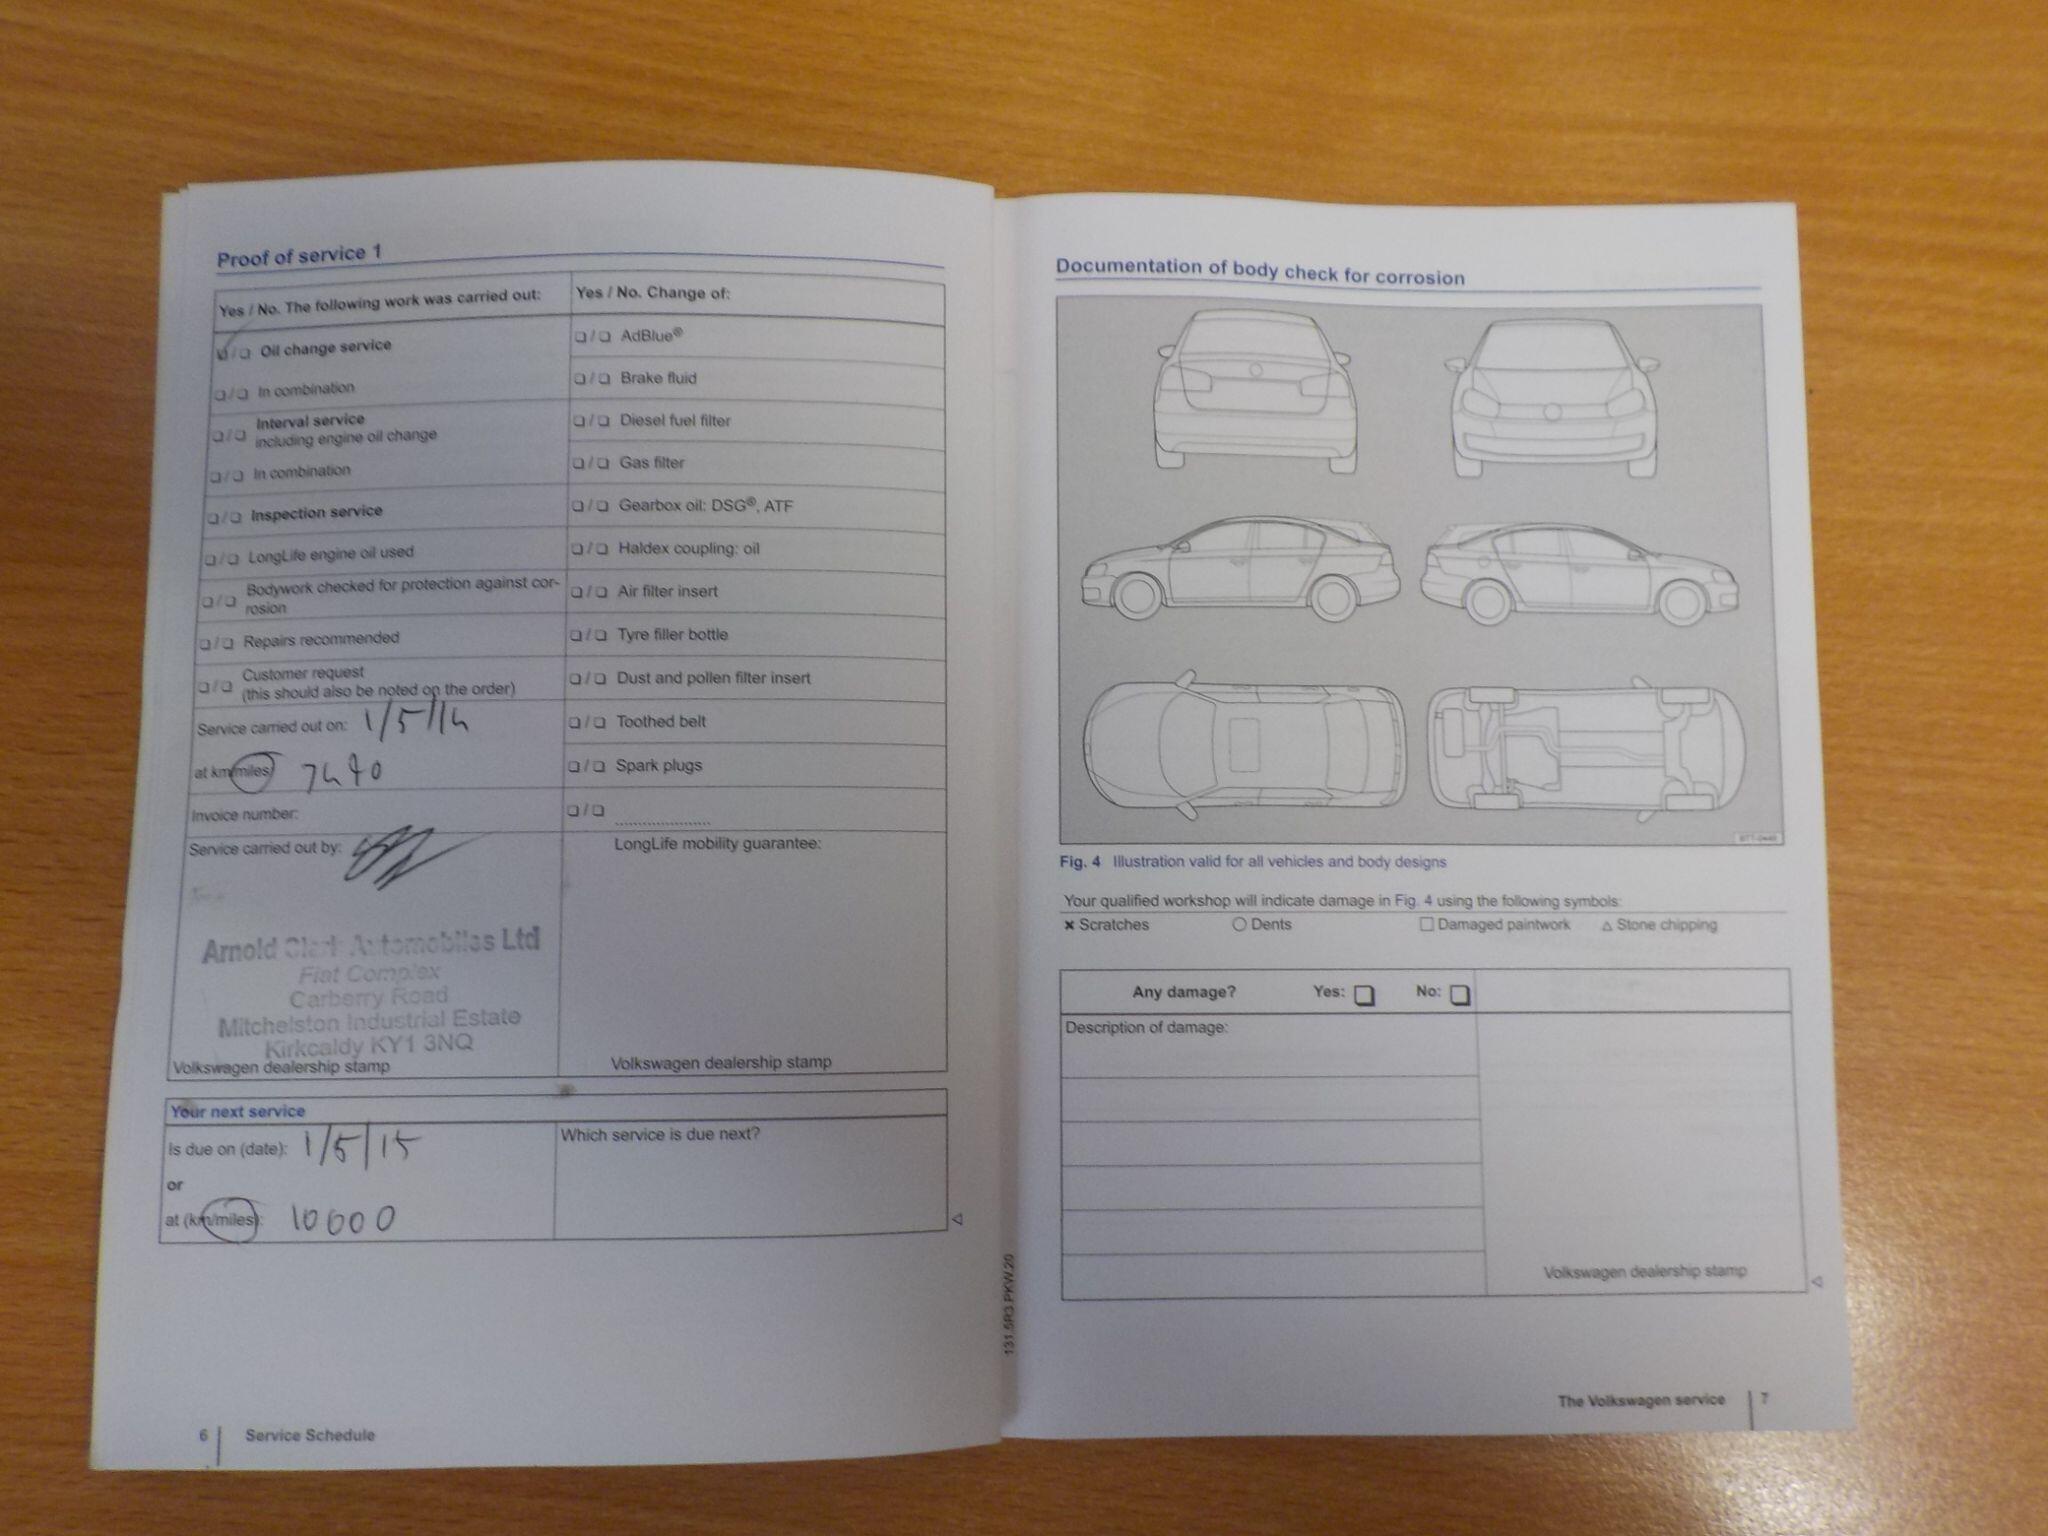 Proof of service 1
Yes / No. The following work was carried out:
Yes / No. Change of:
Oil change service
In combination
Interval service
including engine oil change
In combination
Inspection service
LongLife engine oil used
Bodywork checked for protection against cor-
rosion
Repairs recommended
Customer request
(this should also be noted on the order)
Service carried out on: 1/5/14
at km/miles: 7470
Invoice number:
Service carried out by:
Arnold Clark Automobiles Ltd
Fiat Complex
Carberry Road
Mitchelston Industrial Estate
Kirkcaldy KY1 3NQ
Volkswagen dealership stamp
AdBlue®
Brake fluid
Diesel fuel filter
Gas filter
Gearbox oil: DSG®, ATF
Haldex coupling: oil
Air filter insert
Tyre filler bottle
Dust and pollen filter insert
Toothed belt
Spark plugs
LongLife mobility guarantee:
Volkswagen dealership stamp
Your next service
Is due on (date): 1/5/15
or
at (km/miles): 10000
Which service is due next?
131.5R3.PKW.20
6 Service Schedule
Documentation of body check for corrosion
Fig. 4 Illustration valid for all vehicles and body designs
Your qualified workshop will indicate damage in Fig. 4 using the following symbols:
× Scratches ○ Dents □ Damaged paintwork △ Stone chipping
Any damage? Yes: No:
Description of damage:
Volkswagen dealership stamp
The Volkswagen service 7